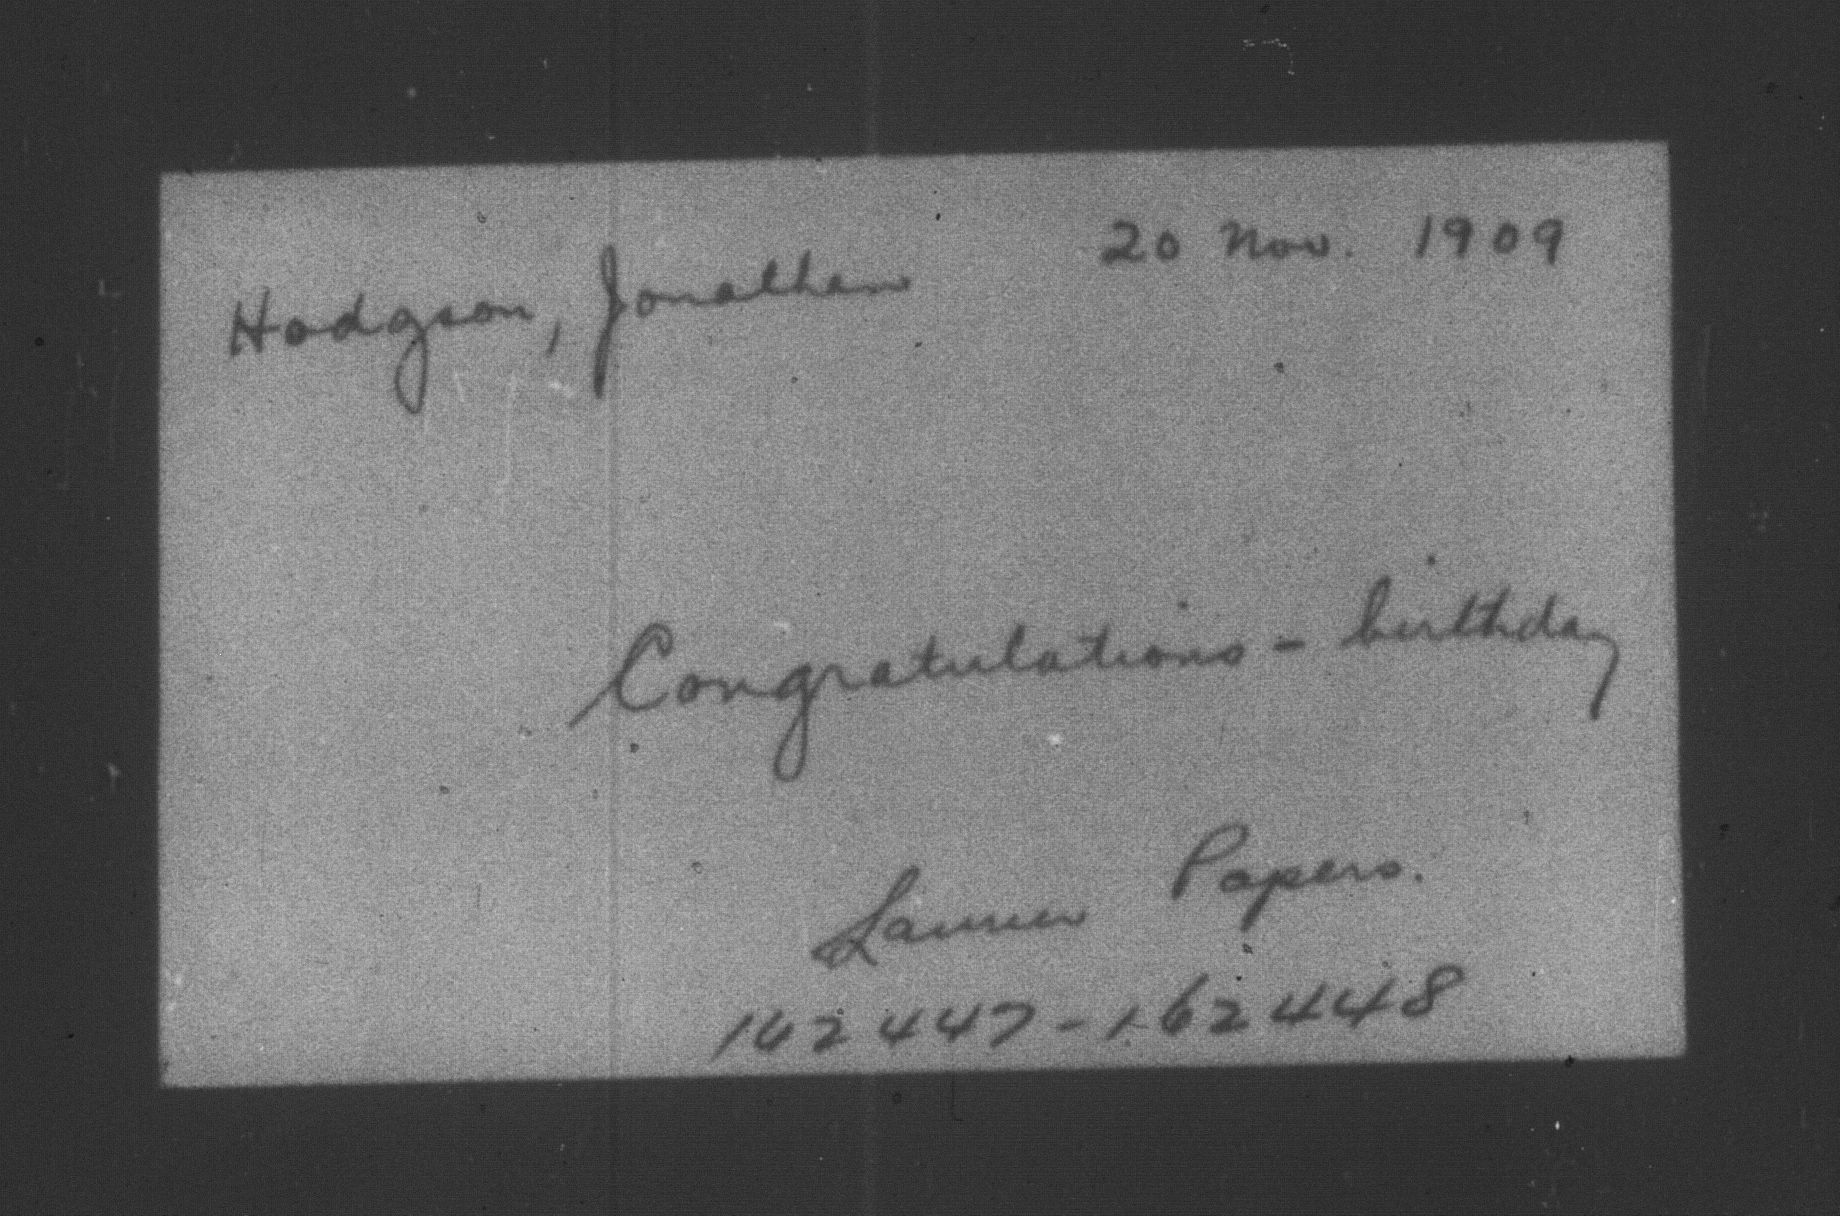 Hodgson, Jonathan 20 Nov. 1909
Congratulations - birthday
Laurier Papers.
162447-162448